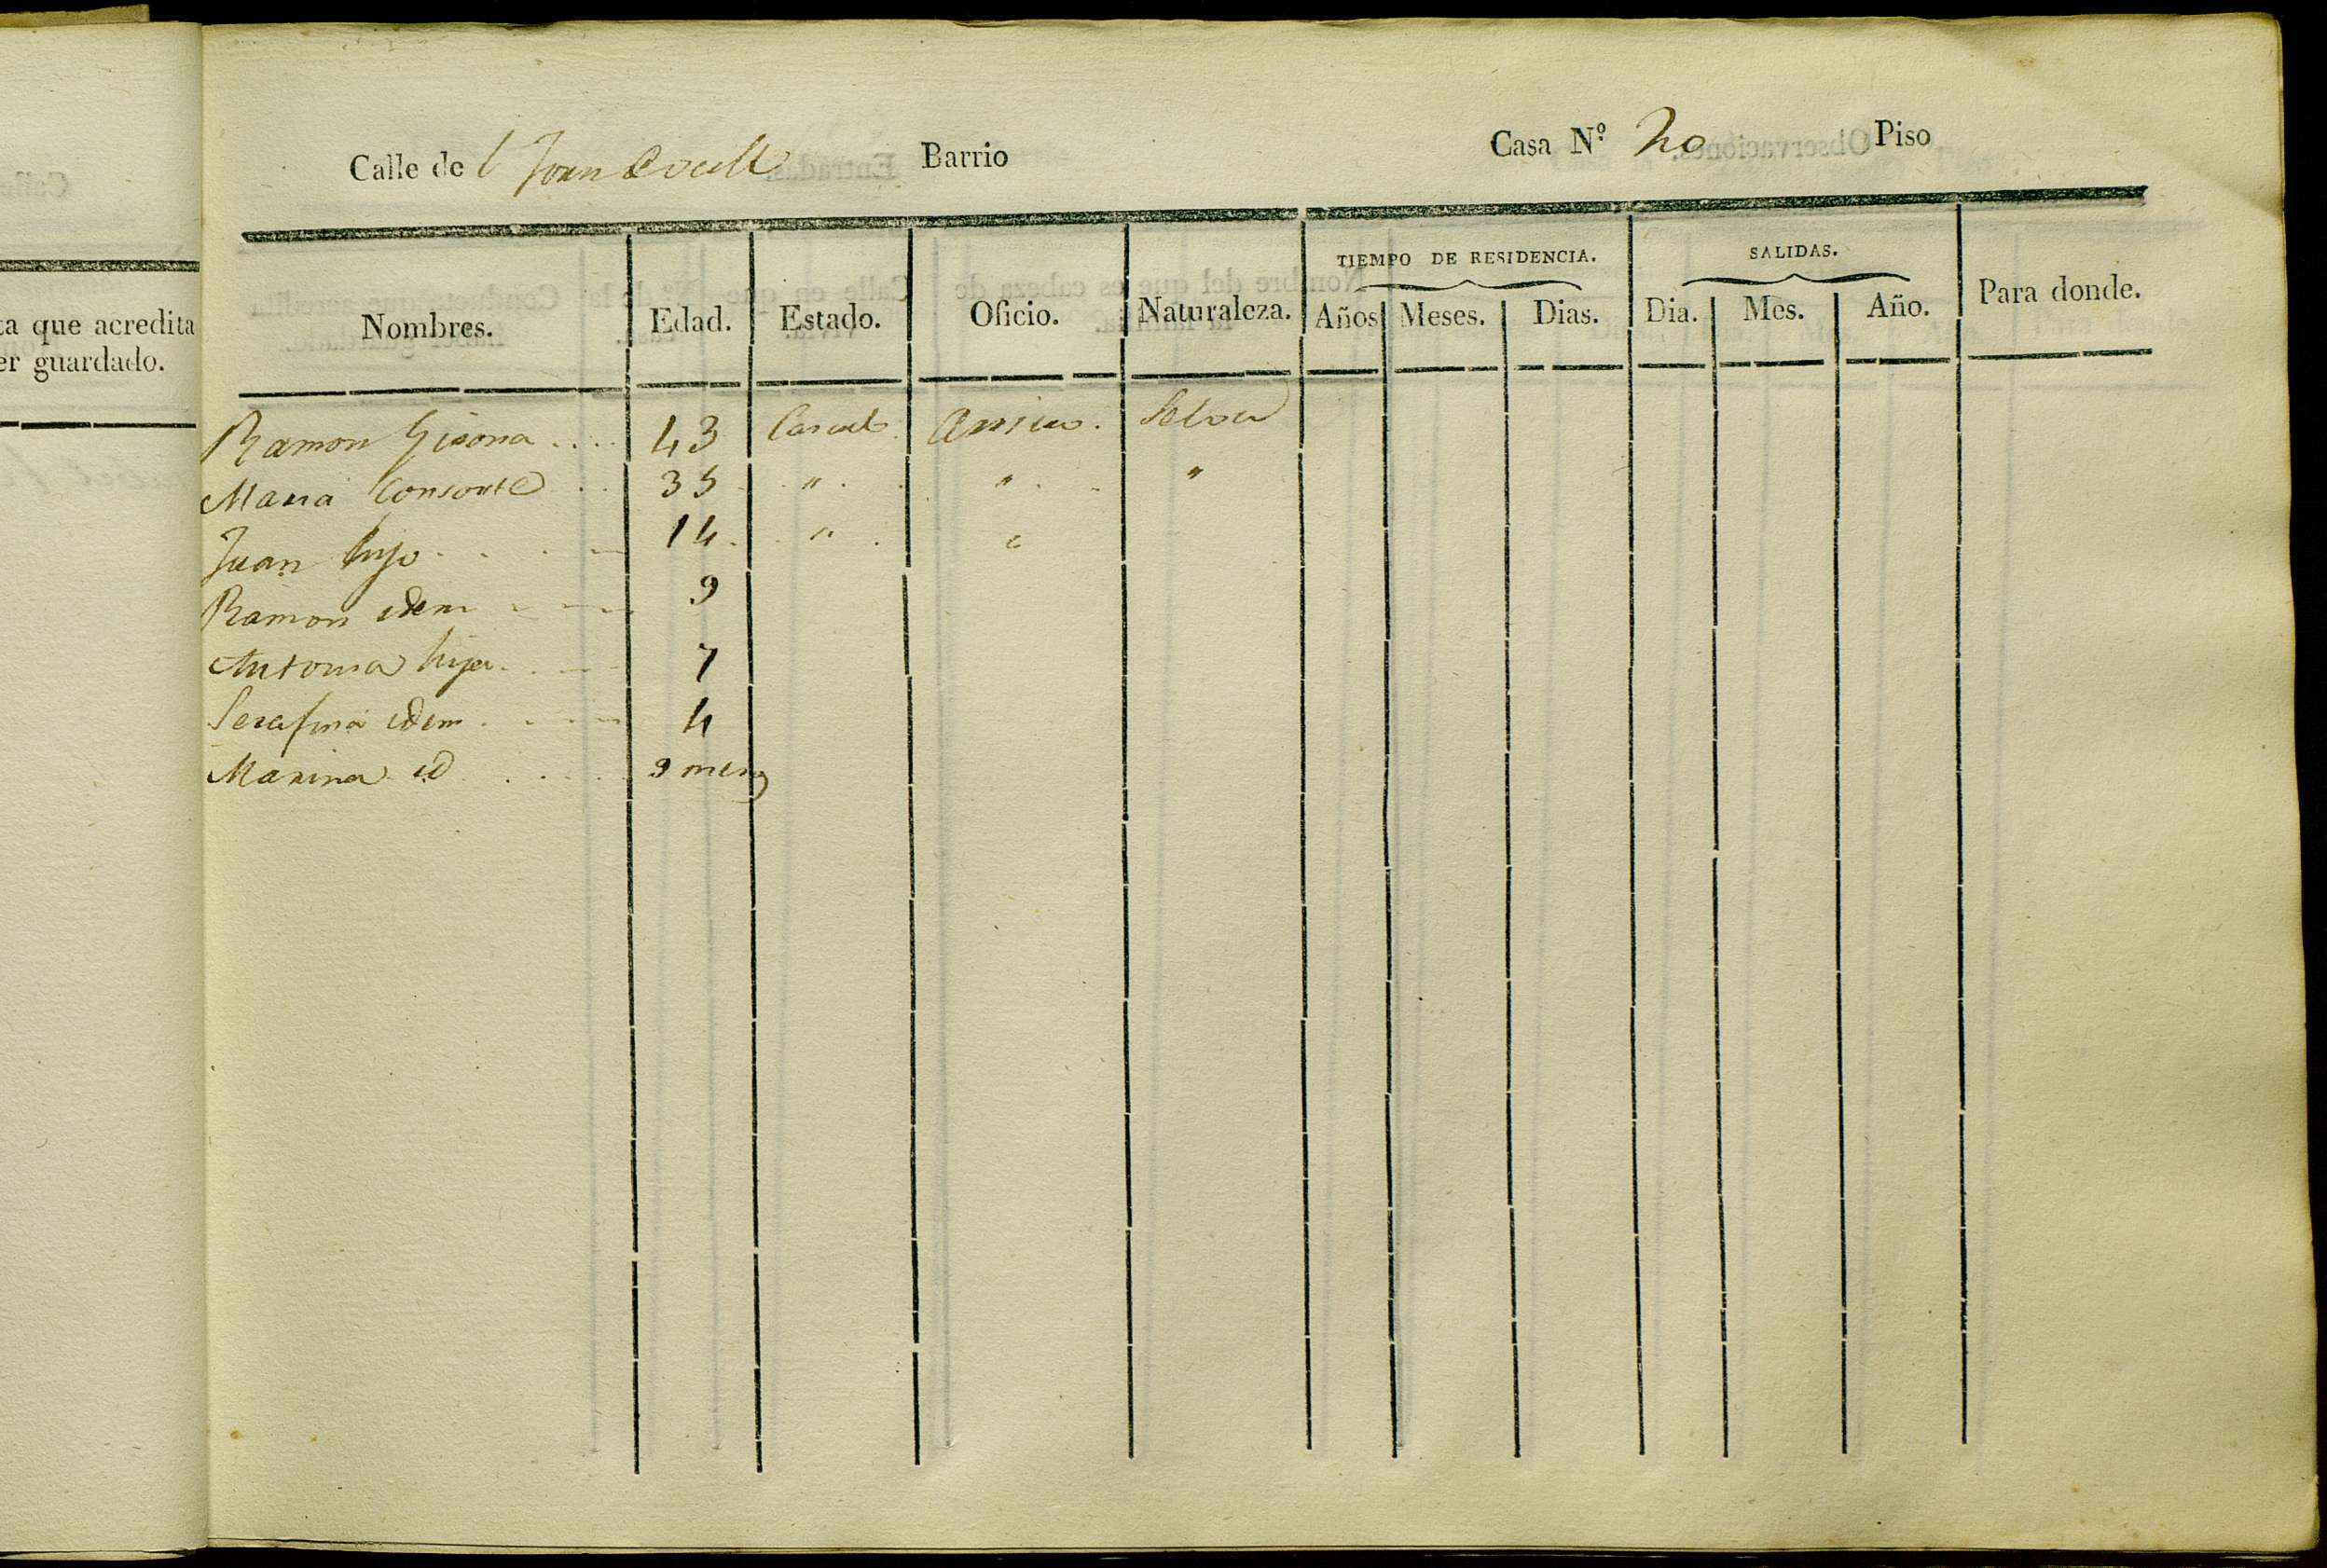 ta que acredita
er guardado.
Calle de Barrio Casa N.º 20 Piso
Nombres. Edad. Estado. Oficio. Naturaleza. TIEMPO DE RESIDENCIA. SALIDAS. Para donde.
Años Meses. Dias. Dia. Mes. Año.
Ramon Gisona .... 43 Casado Selva
Maria Consorte .. 35 " " "
Juan hijo .... 14 "
Ramon idem 9
Antonia hija 7
Serafina idem 4
Marina id 9 meses